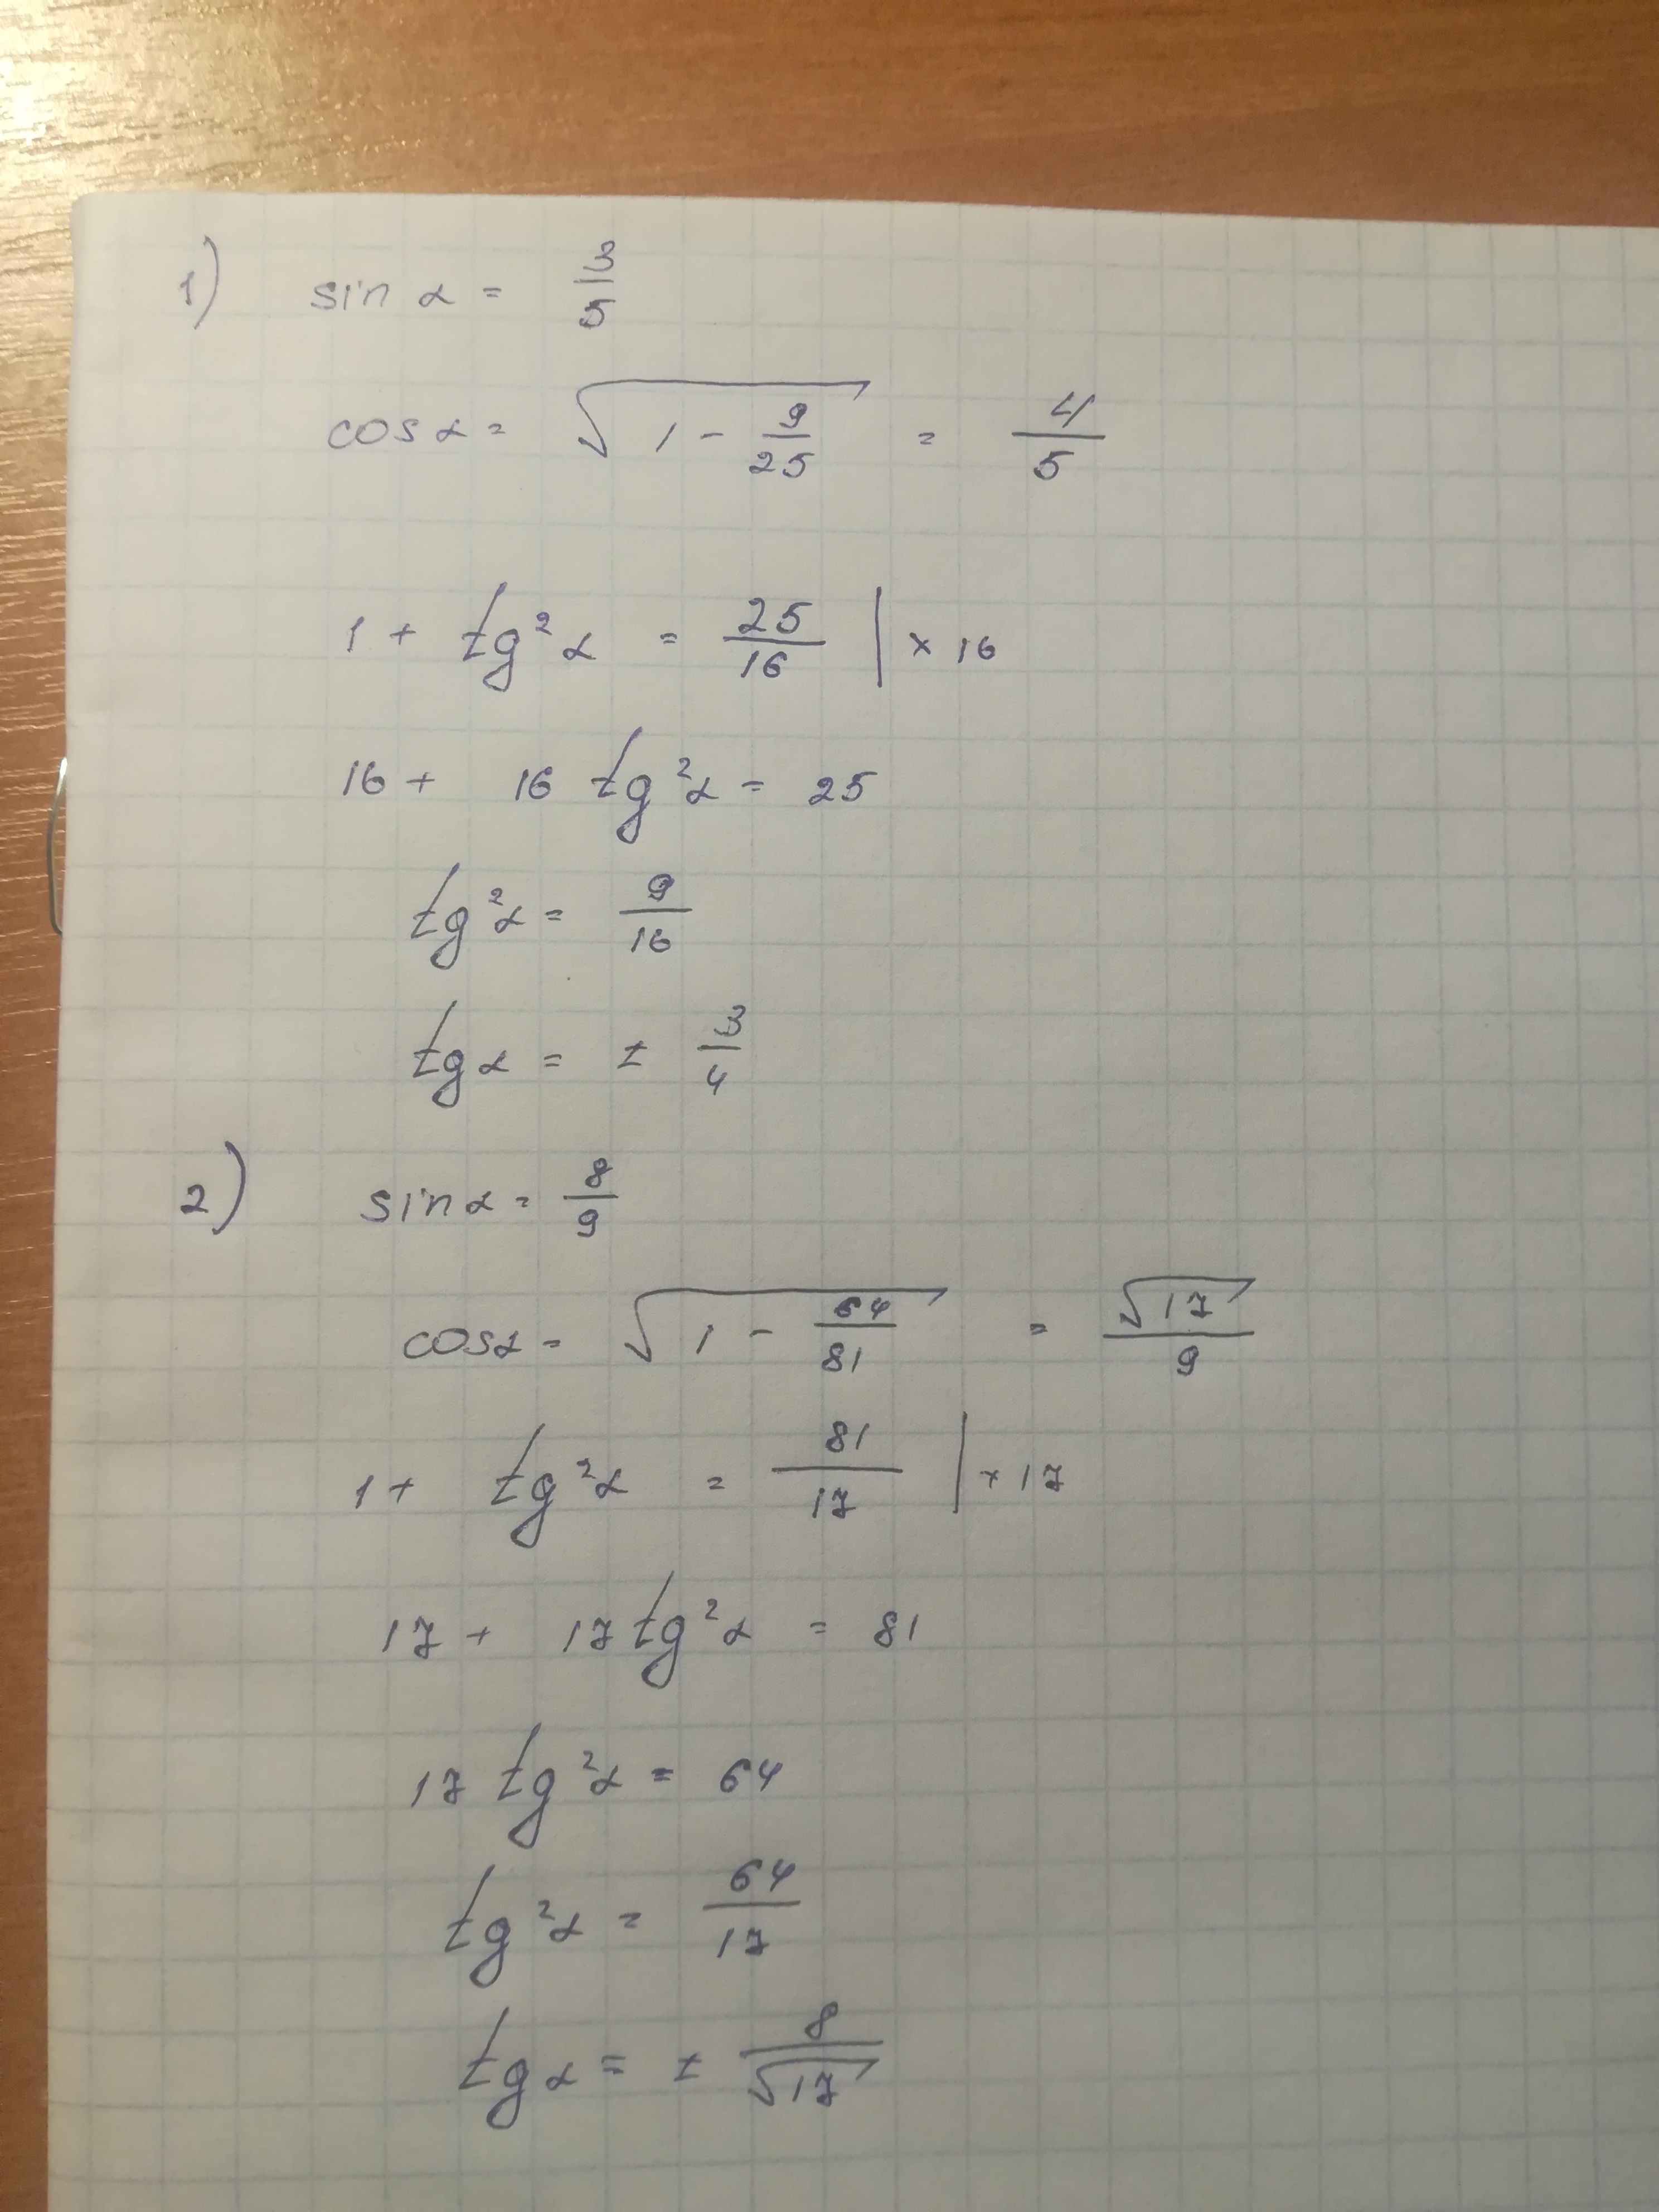 1) sin α = 3/5
cos α = √(1 - 9/25) = 4/5
1 + tg²α = 25/16 | × 16
16 + 16 tg²α = 25
tg²α = 9/16
tg α = ± 3/4
2) sin α = 8/9
cos α = √(1 - 64/81) = √17/9
1 + tg²α = 81/17 | × 17
17 + 17 tg²α = 81
17 tg²α = 64
tg²α = 64/17
tg α = ± 8/√17